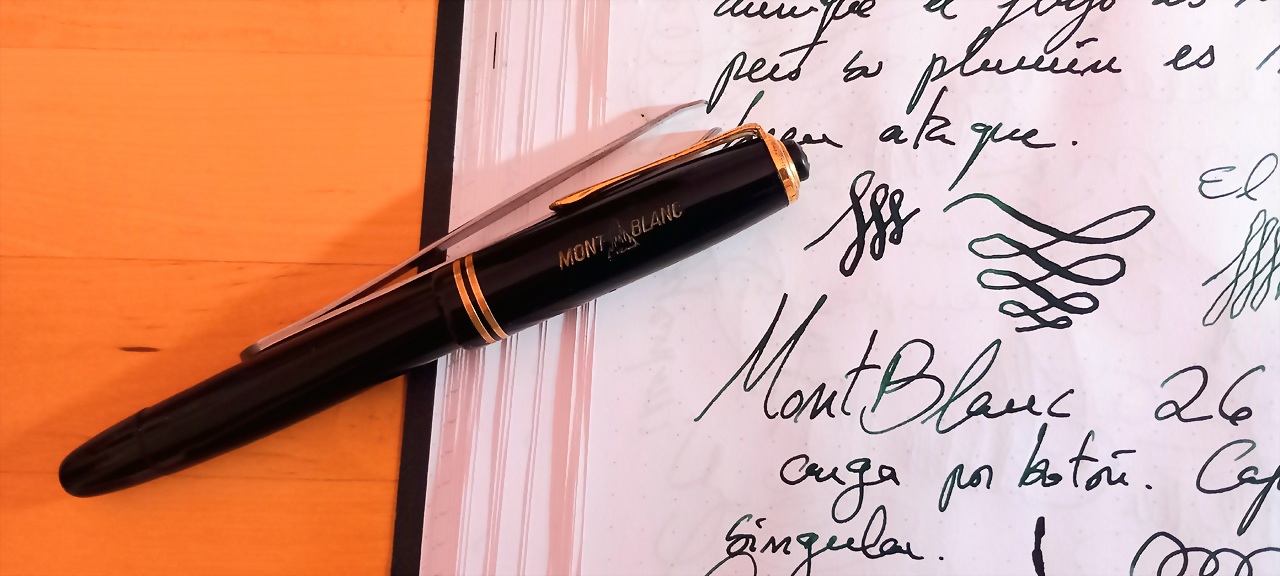 aunque el
pero su plumín es
buen ataque.
El
MONT BLANC
MontBlanc 26
carga por botón. Cap
Singular.